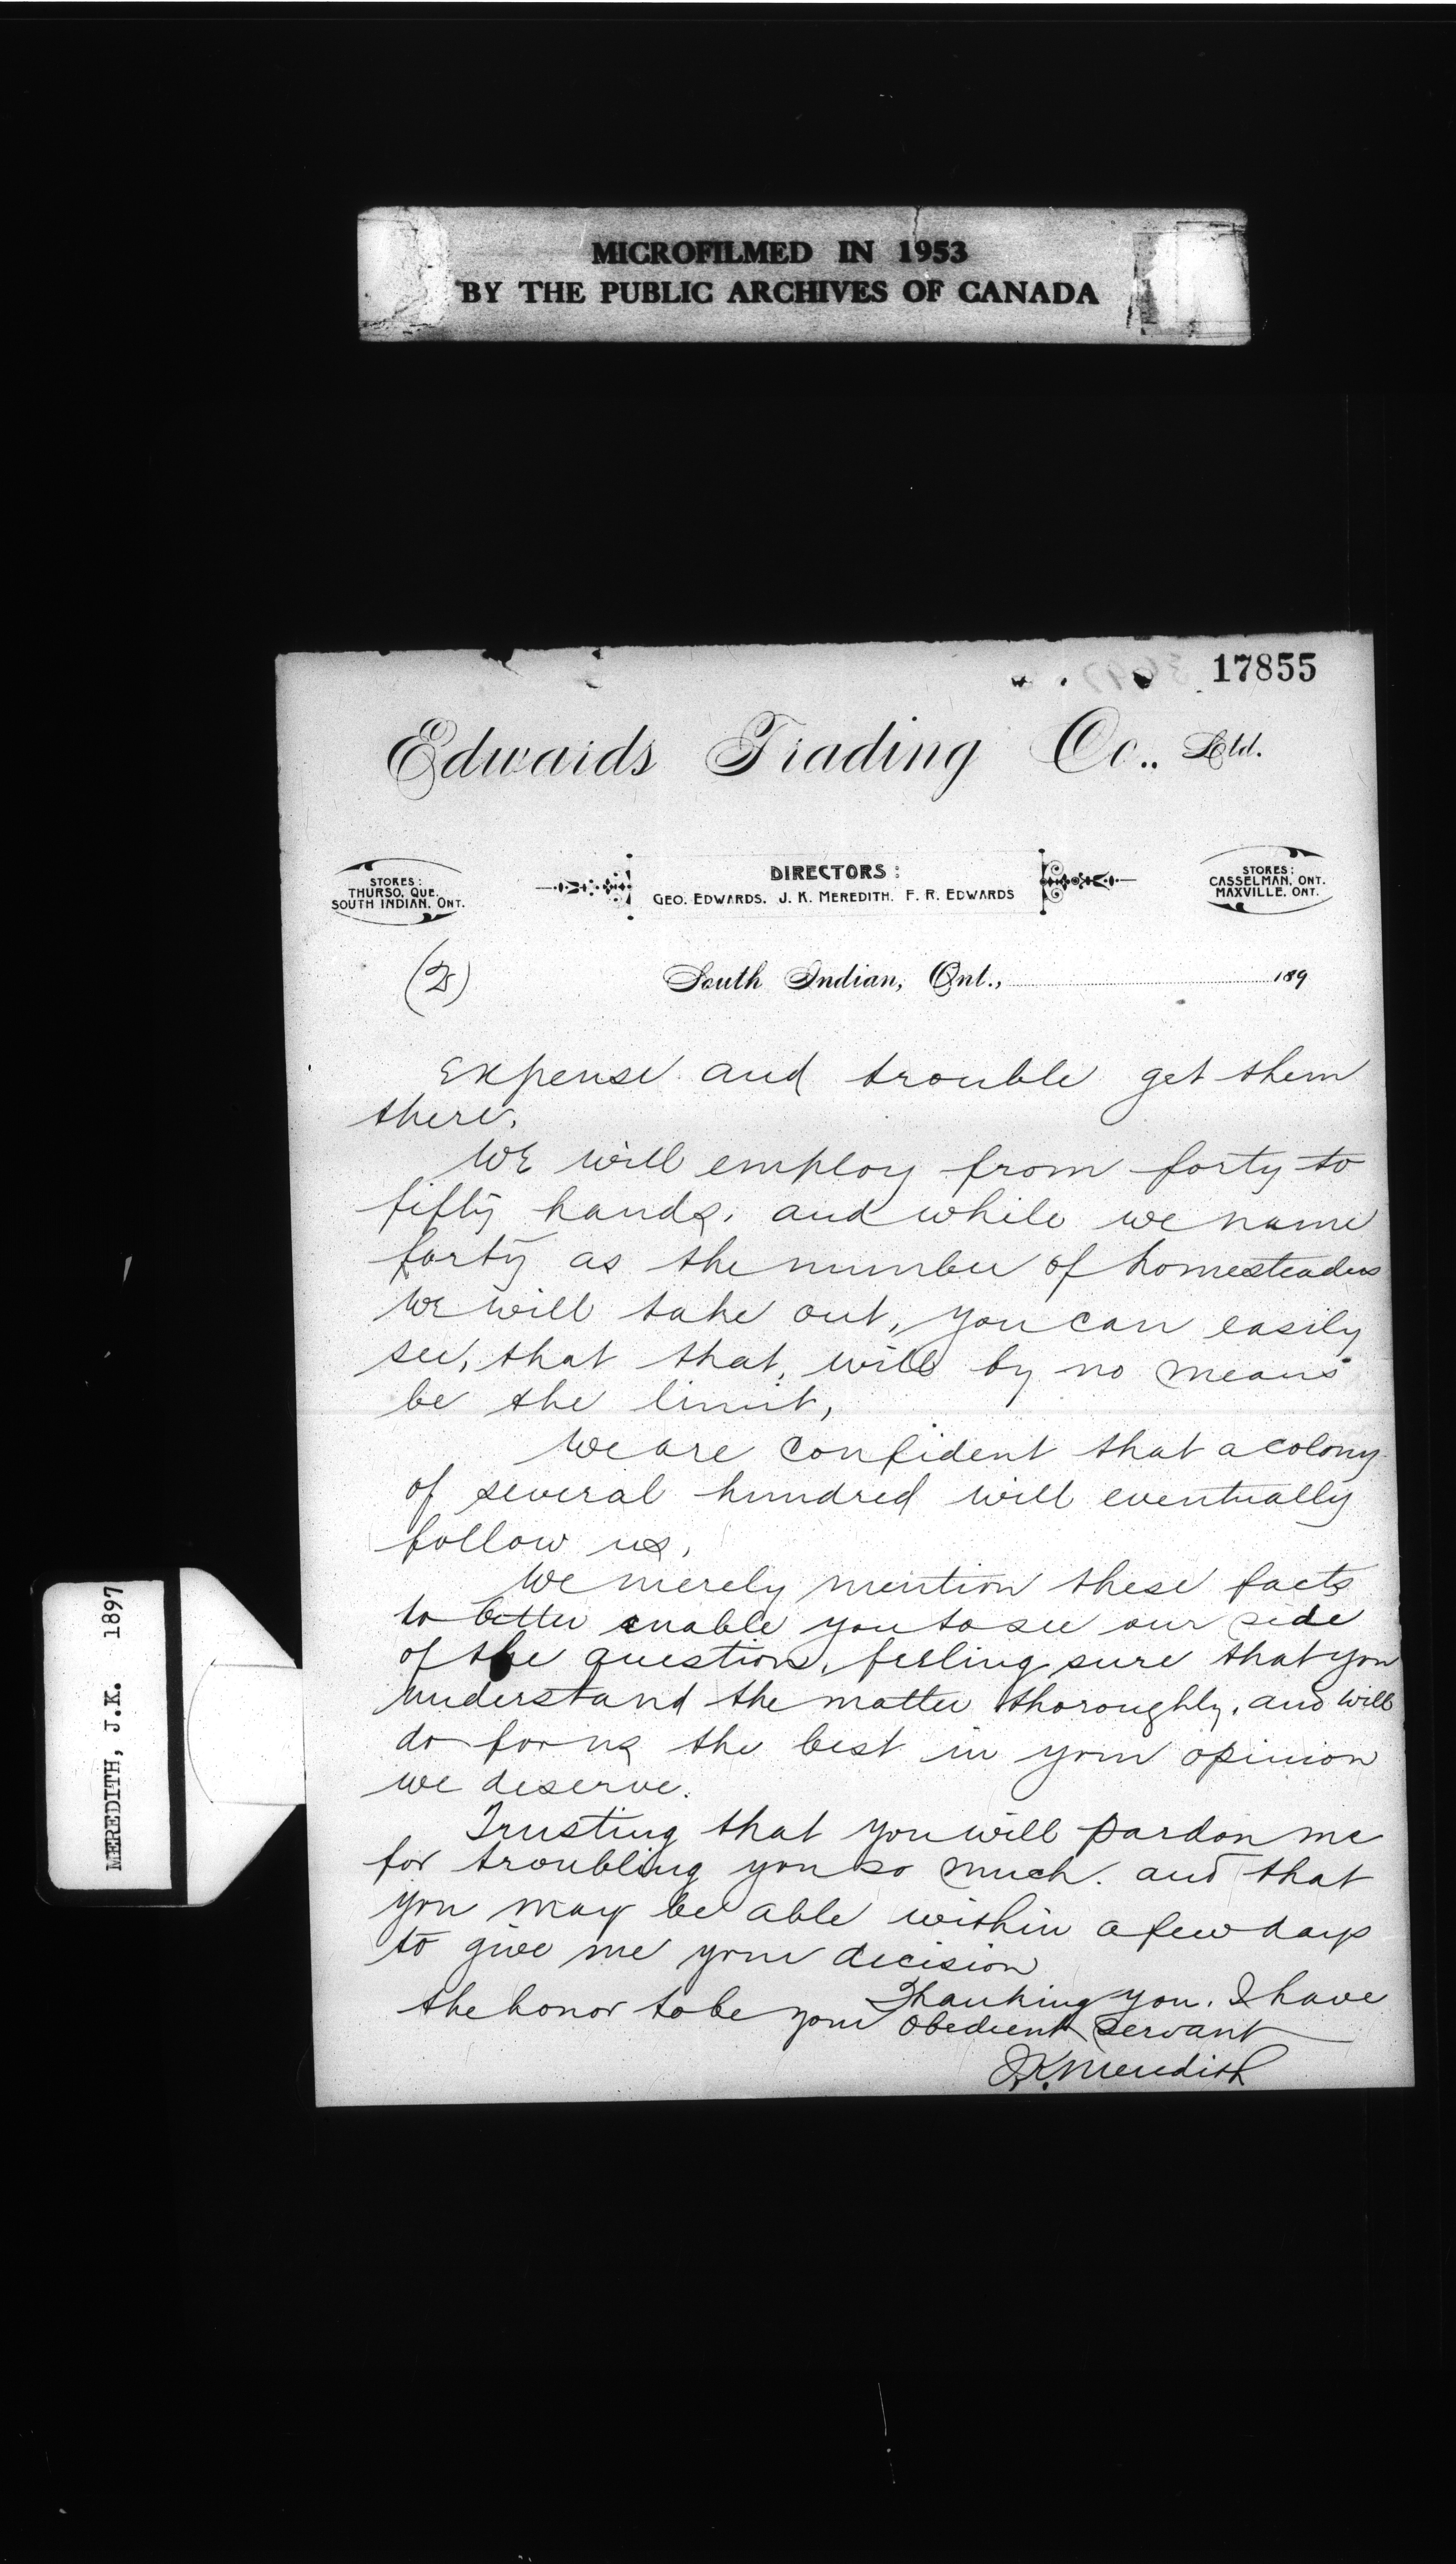 MICROFILMED IN 1953
BY THE PUBLIC ARCHIVES OF CANADA
17855
Edwards Trading Co., Ltd.
STORES:
THURSO, QUE.
SOUTH INDIAN, ONT.
DIRECTORS:
GEO. EDWARDS. J. K. MEREDITH. F. R. EDWARDS
STORES:
CASSELMAN, ONT.
MAXVILLE, ONT.
(2)
South Indian, Ont., 189
Expense and trouble get them
there.
We will employ from forty to
fifty hands. and while we name
forty as the number of homesteaders
we will take out, you can easily
see, that that, will by no means
be the limit,
We are confident that a colony
of several hundred will eventually
follow us.
We merely mention these facts
to better enable you to see our side
of the question, feeling sure that you
understand the matter thoroughly. and will
do for us the best in your opinion
we deserve.
Trusting that you will pardon me
for troubling you so much. and that
you may be able within a few days
to give me your decision
Thanking you. I have
the honor to be your obedient servant
J.K. Meredith
MEREDITH, J.K. 1897